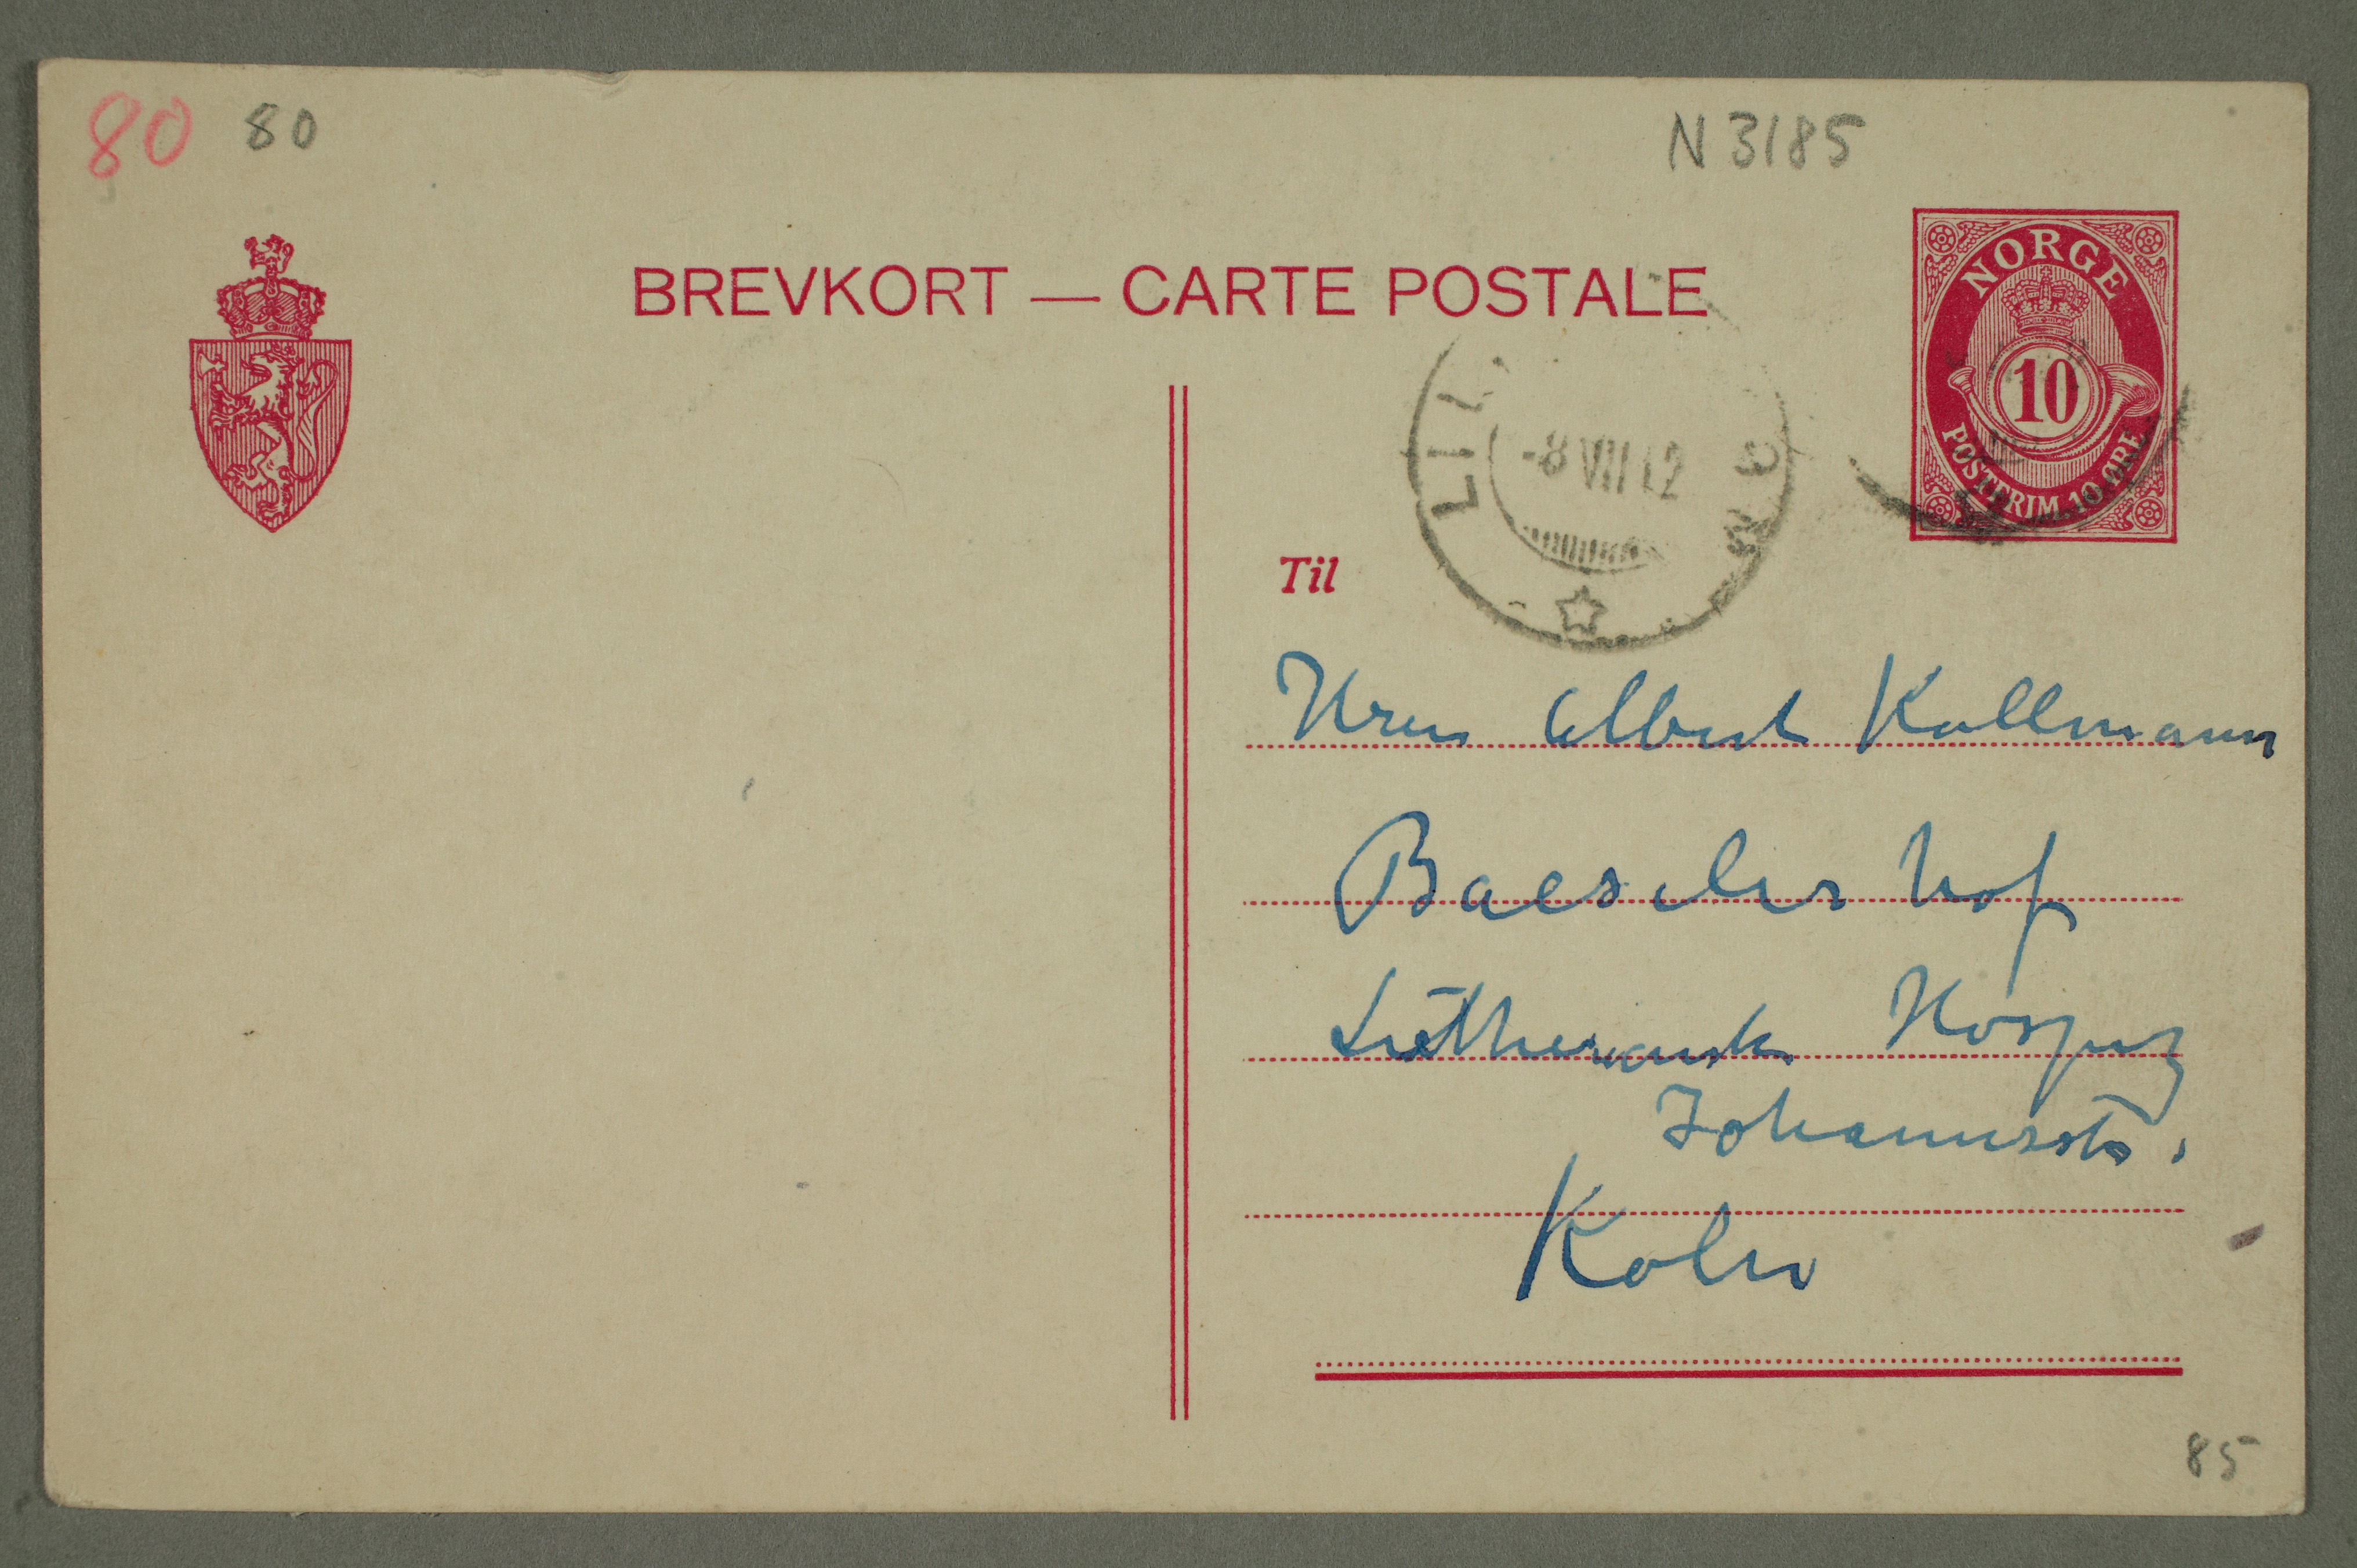 80 80
N 3185
BREVKORT — CARTE POSTALE
NORGE
10
POSTFRIM. 10 ØRE
LIL
-8 VII 12
Til
Hrrn Albert Kollmann
Baeseler hof
Lutheransk Hospiz
Johannesstr.
Koln
85